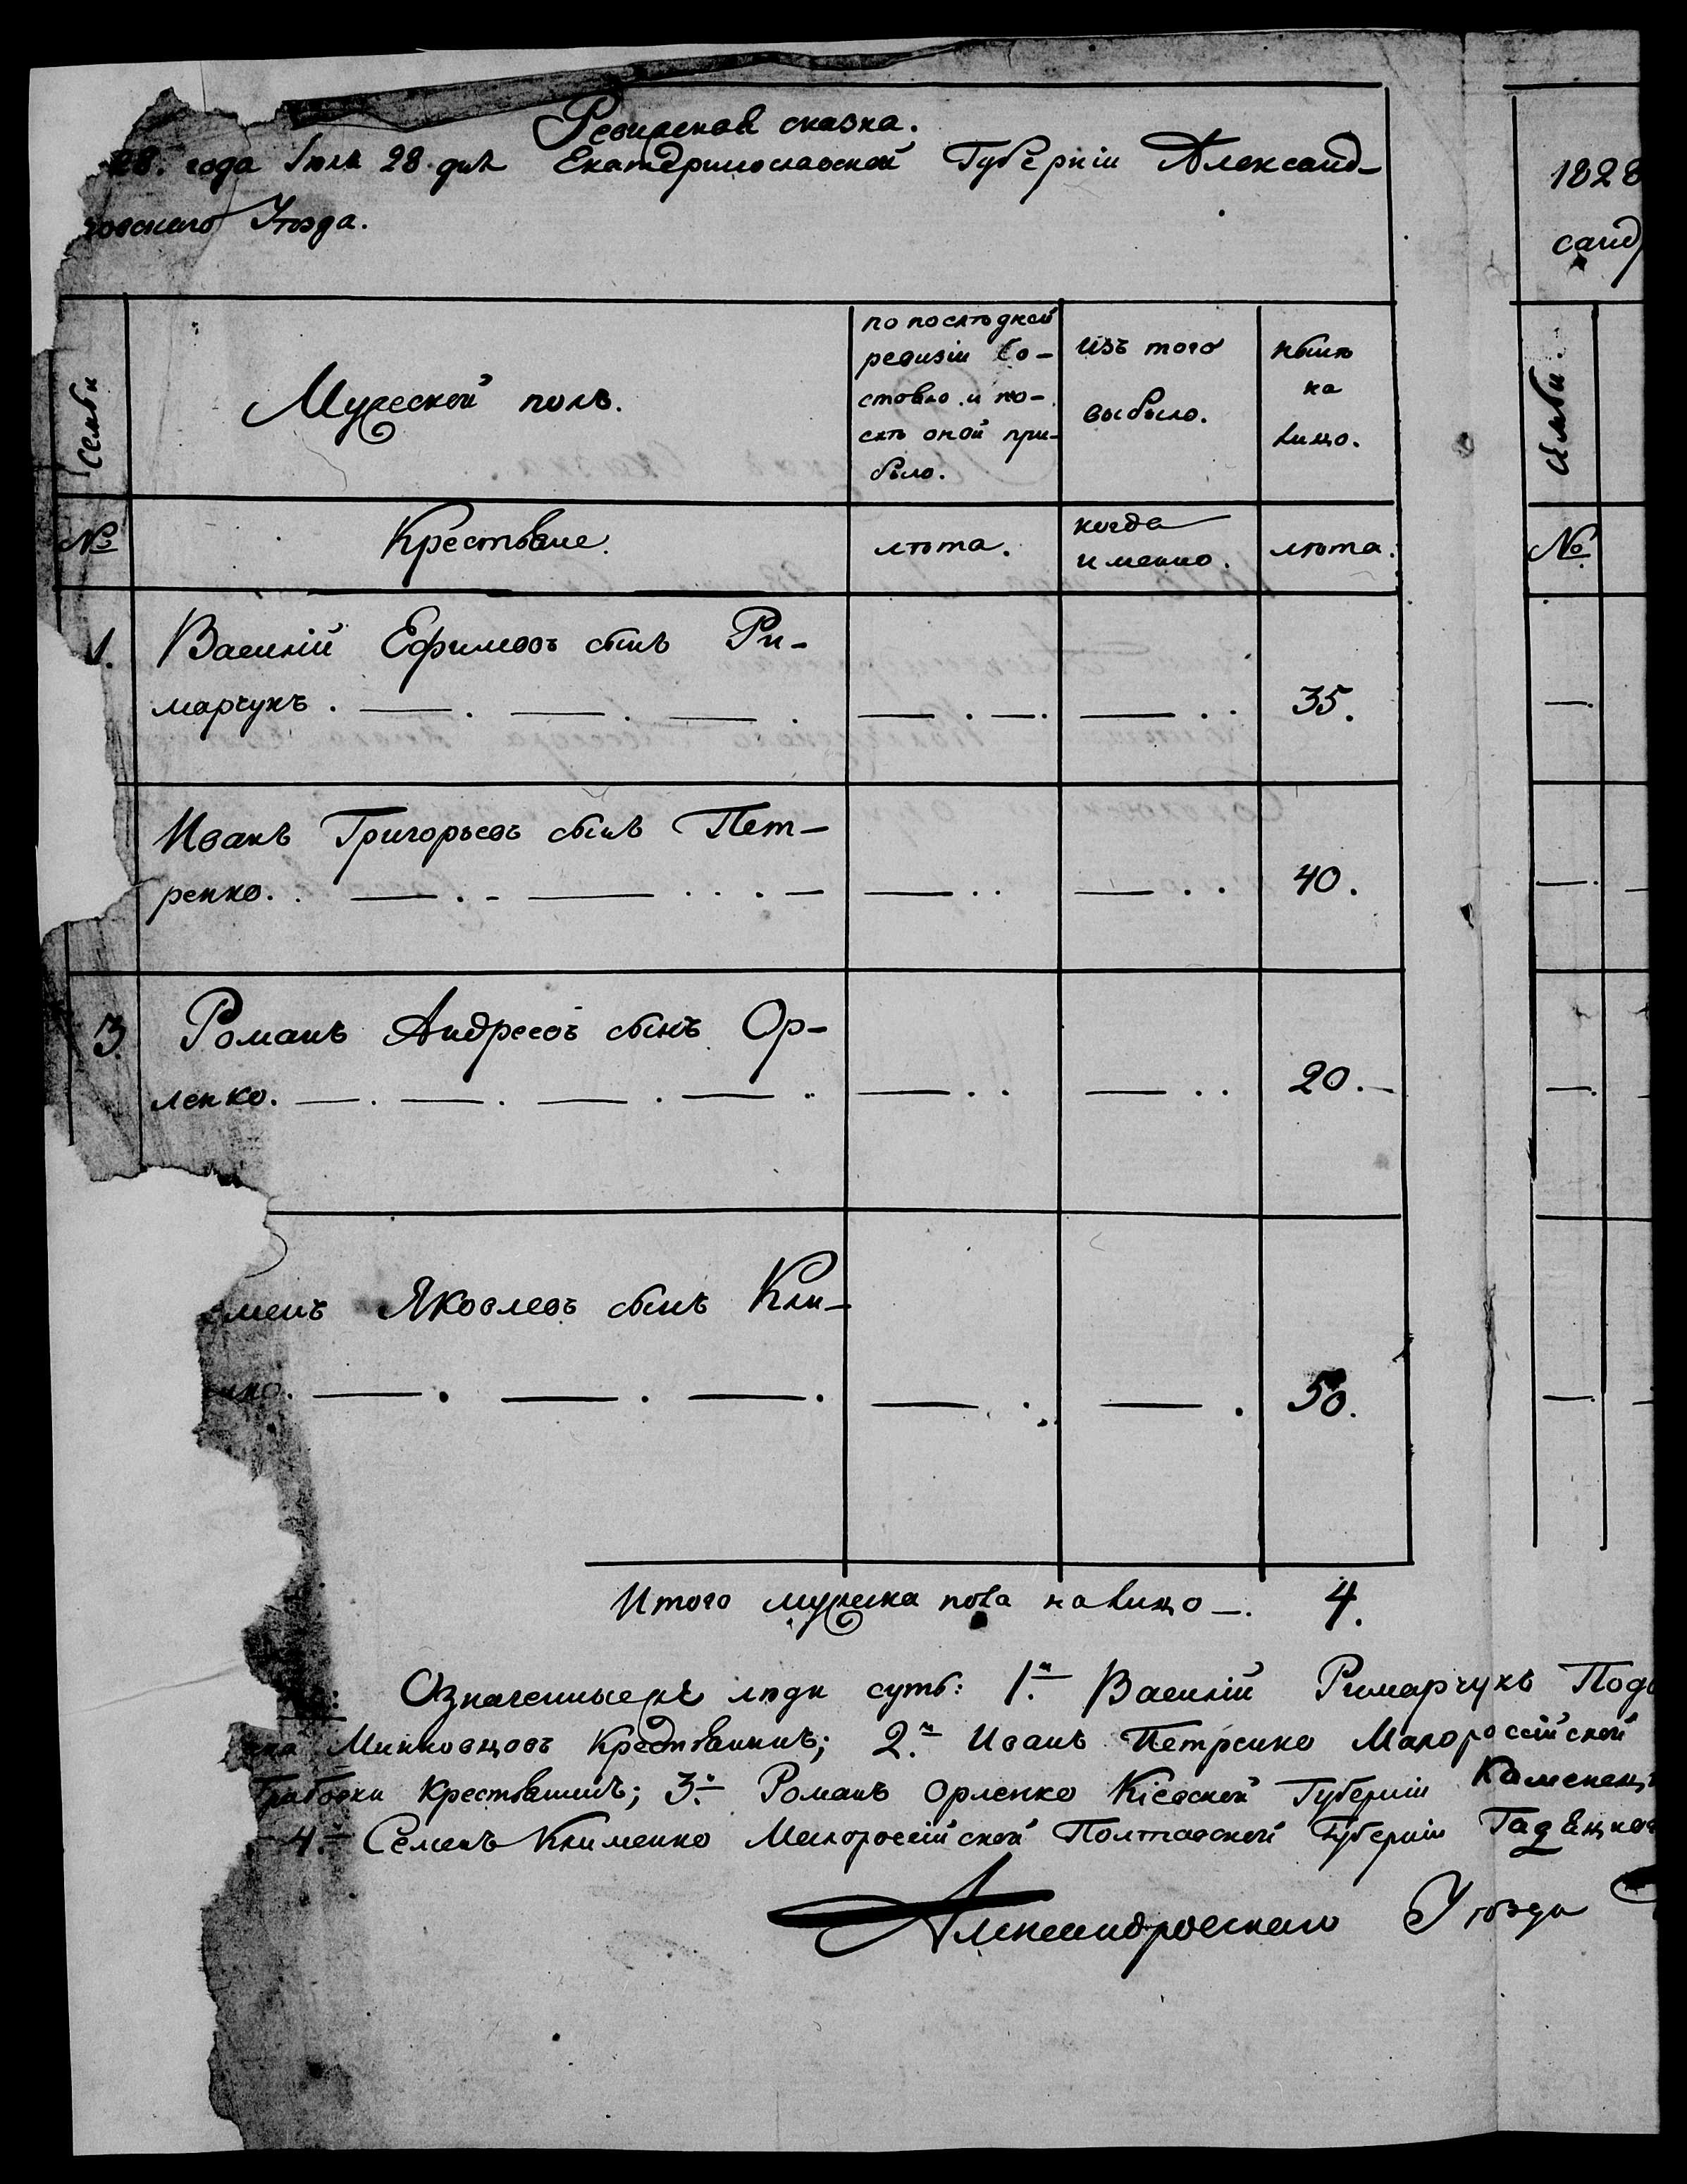 Ревизская сказка.
28. года Іюля 28. дня Екатеринославской Губерніи Александ-
ровскаго Уѣзда.
1828
санд
Семьи
Мужеской полъ.
по послѣдней
ревизіи со-
стояло и по-
слѣ оной при-
было.
изъ того
выбыло.
нынѣ
на
лицо.
Семьи.
№
Крестьяне.
лѣта.
когда
именно.
лѣта.
№
1.
Василій Ефимовъ сынъ Ри-
марчукъ.
35.
Иванъ Григорьевъ сынъ Пет-
ренко.
40.
3.
Романъ Андреевъ сынъ Ор-
ленко.
20.
менъ Яковлевъ сынъ Кли-
нко.
50.
Итого мужеска пола налицо —. 4.
Означенные люди суть: 1.й Василій Римарчукъ Подо
Миньковцовъ Крестьянинъ; 2.й Иванъ Петренко Малороссійской
Грабовки Крестьянинъ; 3.й Романъ Орленко Кіевской Губерніи Каменец
4.й Семенъ Клименко Малороссійской Полтавской Губерніи Гадяцкаг
Александровскаго Уѣзда